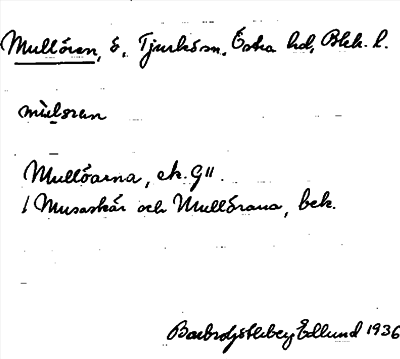 Mullören, ö, Tjurkö sn. Östra hd, Blek. l.
mùløran
Mullöarna, ek. G11.
/ Musaskär och Mullörana, bek.
Edlund 1936